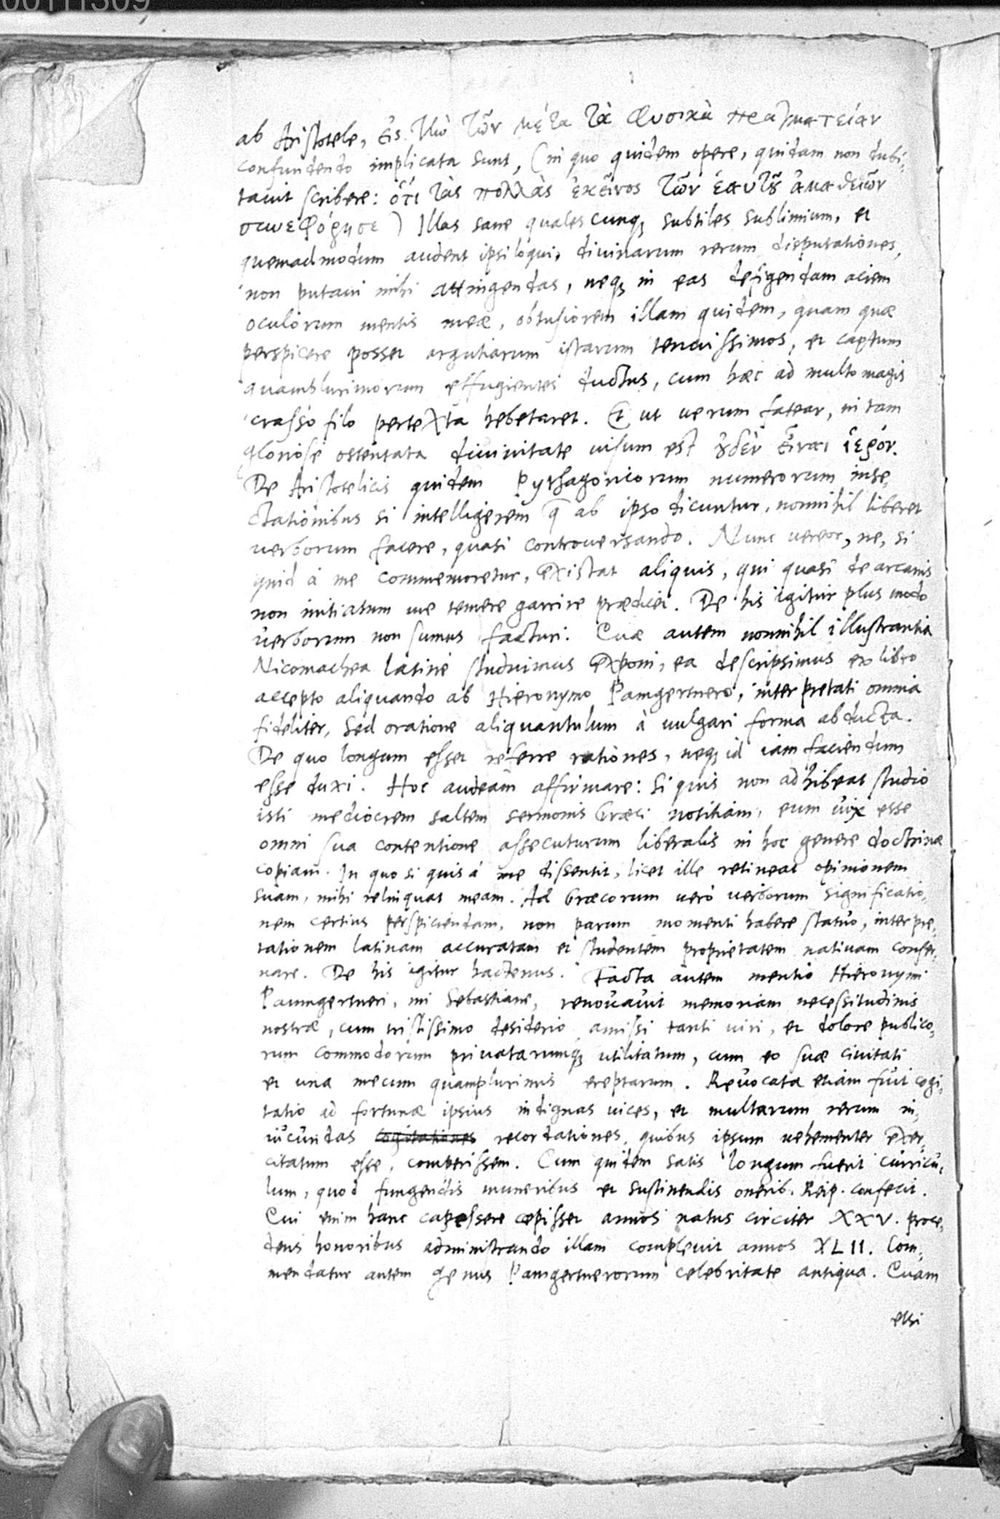 00111309
ab Aristotele, εἰς τὴν τῶν μετὰ τὰ Φυσικὰ πραγματείαν
confundendo implicata sunt, (in quo quidem opere, quidam non dubi,
tavit scribere: ὅτι τὰς πολλὰς ἐκεῖνος τῶν ἑαυτοῦ ἀμαθειῶν
συνεφόρησε) Illas sane qualescunq; subtiles sublimium, et
quemadmodum audent ipsi loqui, divinarum rerum disputationes,
non putavi mihi attingendas, neq; in eas defigendam aciem
oculorum mentis meæ, obtusiorem illam quidem, quam quæ
perspicere posset argutiarum istarum tenuissimos, et captum
quamplurimorum effugientes ductus, cum hæc ad multo magis
crasso filo pertexta hebetaret. Et ut verum fatear, in tam
gloriose ostentata divinitate visum est οὐδὲν εἶναι ἱερόν.
De Aristotelicis quidem Pythagoricorum numerorum inse,
ctationibus si intelligerem q̄ ab ipso dicuntur, nonnihil liberet
verborum facere, quasi controversando. Nunc vereor, ne, si
quid à me commemoretur, existat aliquis, qui quasi de arcanis
non initiatum me temere garrire prædicet. De his igitur plus modo
verborum non sumus facturi. Quæ autem nonnihil illustrantia
Nicomachea latine studuimus exponi, ea descripsimus ex libro
accepto aliquando ab Hieronymo Pamgertnero, interpretati omnia
fideliter, sed oratione aliquantulum à vulgari forma abducta.
De quo longum esset referre rationes, neq; id iam faciendum
esse duxi. Hoc audeam affirmare: Si quis non adhibeat studio
isti mediocrem saltem sermonis Græci notitiam, eum vix esse
omni sua contentione assecuturum liberalis in hoc genere doctrinæ
copiam. In quo si quis à me dissentit, licet ille retineat opinionem
suam, mihi relinquat meam. Ad Græcorum verò verborum significatio,
nem certius perspiciendam, non parum momenti habere statuo, interpre,
tationem latinam accuratam et studentem proprietatem nativam conser,
vare. De his igitur hactenus. Facta autem mentio Hieronymi
Paumgertneri, mi Sebastiane, renovavit memoriam necessitudinis
nostræ, cum tristissimo desiderio amissi tanti viri, et dolore publico,
rum commodorum privatarumq; utilitatum, cum eo suæ civitati
et una mecum quamplurimis ereptarum. Revocata etiam fuit cogi,
tatio ad fortunæ ipsius indignas vices, et multarum rerum in,
iucundas cogitationes recordationes, quibus ipsum vehementer exer,
citatum esse, comperissem. Cum quidem satis longum fuerit curricu,
lum, quod fungendis muneribus et sustinendis onerib. Reip. confecit.
Cui enim hanc capessere cœpisset annos natus circiter XXV. proce,
dens honoribus administrando illam complevit annos XLII. Com,
mendatur autem genus Pamgertnerorum celebritate antiqua. Quam
etsi